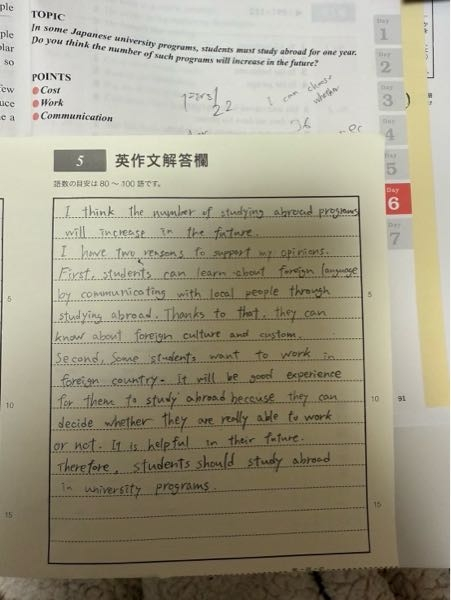 ple
plar
so
few
uce
ne a
TOPIC
In some Japanese university programs, students must study abroad for one year.
Do you think the number of such programs will increase in the future?
POINTS
Cost
Work
Communication
I can choose
whether
22
Day
1
Day
2
Day
3
Day
4
Day
5
Day
6
Day
7
91
5 英作文解答欄
語数の目安は 80 ～ 100 語です。
I think the number of studying abroad programs
will increase in the future.
I have two reasons to support my opinions.
First, students can learn about foreign language
by communicating with local people through
studying abroad. Thanks to that, they can
know about foreign culture and custom.
Second, some students want to work in
foreign country. It will be good experience
for them to study abroad because they can
decide whether they are really able to work
or not. It is helpful in their future.
Therefore, students should study abroad
in university programs.
5
10
15
5
10
15